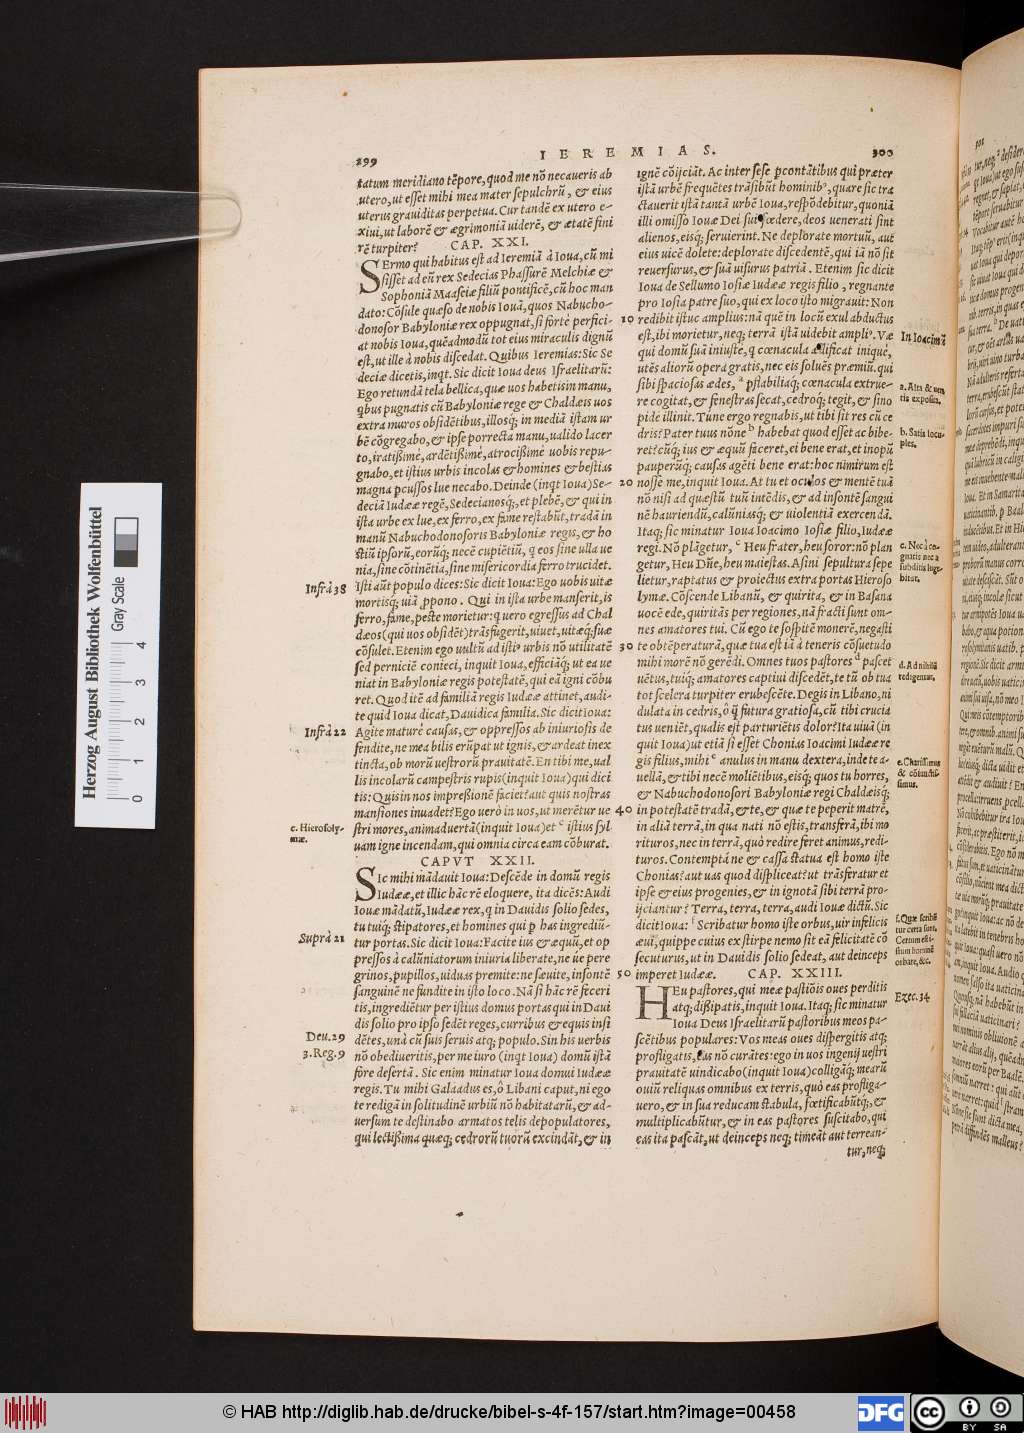 299
IEREMIAS.
300
tatum meridiano tẽpore, quod me nõ necaueris ab
vtero, ut esset mihi mea mater sepulchrũ, & eius
uterus grauiditas perpetua. Cur tandẽ ex utero e-
xiui, ut laborẽ & ægrimoniã uiderẽ, & ætatẽ fini
rẽ turpiter? CAP. XXI.
SErmo qui habitus est ad Ieremiã à Ioua, cũ mi
sisset ad eũ rex Sedecias Phassurẽ Melchiæ &
Sophoniã Maaseiæ filiũ pontificẽ, cũ hoc man
dato: Cõsule quæso de nobis Iouã, quos Nabucho-
donosor Babyloniæ rex oppugnat, si fortè perfici-
at nobis Ioua, quẽadmodũ tot eius miraculis dignũ
est, ut ille à nobis discedat. Quibus Ieremias: Sic Se
deciæ dicetis, inqt. Sic dicit Ioua deus Israelitarũ:
Ego retundã tela bellica, quæ uos habetis in manu,
qbus pugnatis cũ Babyloniæ rege & Chaldæis uos
extra muros obsidẽtibus, illosq; in mediã istam ur
bẽ cõgregabo, & ipse porrecta manu, ualido lacer
to, iratißimè, ardẽtißimè, atrocißimè uobis repu-
gnabo, et istius urbis incolas & homines & bestias
magna pcussos lue necabo. Deinde (inqt Ioua) Se-
deciã Iudææ regẽ, Sedecianosq;, et plebẽ, & qui in
ista urbe ex lue, ex ferro, ex fame restabũt, tradã in
manũ Nabuchodonosoris Babyloniæ regis, & ho
stiũ ipsorũ, eorũq; necẽ cupiẽtiũ, q eos sine ulla ue
nia, sine cõtinẽtia, sine misericordia ferro trucidet.
Infrà 38
Isti aũt populo dices: Sic dicit Ioua: Ego uobis uitæ
mortisq; uiã ppono. Qui in ista urbe manserit, is
ferro, fame, peste morietur: q uero egressus ad Chal
dæos (qui uos obsidẽt) trãsfugerit, uiuet, uitæq; suæ
cõsulet. Etenim ego uultũ ad istiꝰ urbis nõ utilitatẽ
sed perniciẽ conieci, inquit Ioua, efficiãq; ut ea ue
niat in Babyloniæ regis potestatẽ, qui eã igni cõbu
ret. Quod itẽ ad familiã regis Iudææ attinet, audi-
te quid Ioua dicat, Dauidica familia. Sic dicit Ioua:
Infrà 22
Agite maturè causas, & oppressos ab iniuriosis de
fendite, ne mea bilis erũpat ut ignis, & ardeat inex
tincta, ob morũ uestrorũ prauitatẽ. En tibi me, ual
lis incolarũ campestris rupis (inquit Ioua) qui dici
tis: Quis in nos impreßionẽ faciet? aut quis nostras
mansiones inuadet? Ego uerò in uos, ut merẽtur ue
c. Hierosoly-
mæ.
stri mores, animaduertã (inquit Ioua) et c istius syl
uam igne incendam, qui omnia circa eam cõburat.
CAPVT XXII.
SIc mihi mãdauit Ioua: Descẽde in domũ regis
Iudææ, et illic hãc rẽ eloquere, ita dicẽs: Audi
Iouæ mãdatũ, Iudææ rex, q in Dauidis solio sedes,
tu tuiq; stipatores, et homines qui p has ingrediũ-
Suprà 21
tur portas. Sic dicit Ioua: Facite ius & æquũ, et op
pressos à calũniatorum iniuria liberate, ne ue pere
grinos, pupillos, uiduas premite: ne sæuite, insontẽ
sanguinẽ ne fundite in isto loco. Nã si hãc rẽ feceri
tis, ingrediẽtur per istius domus portas qui in Daui
dis solio pro ipso sedẽt reges, curribus & equis insi
Deu. 29
dẽtes, unà cũ suis seruis atq; populo. Sin his uerbis
3. Reg. 9
nõ obediueritis, per me iuro (inqt Ioua) domũ istã
fore desertã. Sic enim minatur Ioua domui Iudææ
regis. Tu mihi Galaadus es, ô Libani caput, ni ego
te redigã in solitudinẽ urbiũ nõ habitatarũ, & ad-
uersum te destinabo armatos telis depopulatores,
qui lectißima quæq; cedrorũ tuorũ excindãt, & in
ignẽ cõijciãt. Ac inter sese pcontãtibus qui præter
istã urbẽ frequẽtes trãsibũt hominibꝰ, quare sic tra
ctauerit istã tantã urbẽ Ioua, respõdebitur, quoniã
illi omisso Iouæ Dei sui fœdere, deos uenerati sint
alienos, eisq; seruierint. Ne deplorate mortuũ, aut
eius uicẽ dolete: deplorate discedentẽ, qui iã nõ sit
reuersurus, & suã uisurus patriã. Etenim sic dicit
Ioua de Sellumo Iosiæ Iudææ regis filio, regnante
pro Iosia patre suo, qui ex loco isto migrauit: Non
10 redibit istuc amplius: nã quẽ in locũ exul abductus
est, ibi morietur, neq; terrã istã uidebit ampliꝰ. Væ
In Ioacimũ
qui domũ suã iniustè, q cœnacula ædificat iniquè,
utẽs aliorũ opera gratis, nec eis soluẽs præmiũ. qui
a. Alta & uen
tis exposita.
sibi spaciosas ædes, a pstabiliãq; cœnacula extrue-
re cogitat, & fenestras secat, cedroq; tegit, & sino
pide illinit. Tũne ergo regnabis, ut tibi sit res cũ ce
b. Satis locu-
ples.
dris? Pater tuus nõne b habebat quod esset ac bibe-
ret? cũq; ius & æquũ faceret, ei bene erat, et inopũ
pauperũq; causas agẽti bene erat: hoc nimirum est
20 nosse me, inquit Ioua. At tu et oculos & mentẽ tuã
nõ nisi ad quæstũ tuũ intẽdis, & ad insontẽ sangui
nẽ hauriendũ, calũniasq; & uiolentiã exercendã.
Itaq; sic minatur Ioua Ioacimo Iosiæ filio, Iudææ
c. Nec à co-
gnatis nec a
subditis luge-
bitur.
regi. Nõ plãgetur, c Heu frater, heu soror: nõ plan
getur, Heu Dñe, heu maiestas. Asini sepultura sepe
lietur, raptatus & proiectus extra portas Hieroso
lymæ. Cõscende Libanũ, & quirita, & in Basana
uocẽ ede, quiritãs per regiones, nã fracti sunt om-
nes amatores tui. Cũ ego te sospitẽ monerẽ, negasti
30 te obtẽperaturã, quæ tua est iã à teneris cõsuetudo
d. Ad nihilũ
redigentur.
mihi morẽ nõ gerẽdi. Omnes tuos pastores d pascet
uẽtus, tuiq; amatores captiui discedẽt, te tũ ob tua
tot scelera turpiter erubescẽte. Degis in Libano, ni
dulata in cedris, ô q̃ futura gratiosa, cũ tibi crucia
tus ueniẽt, qualis est parturiẽtis dolor? Ita uiuã (in
quit Ioua) ut etiã si esset Chonias Ioacimi Iudææ re
e. Charissimus
& cõiunctis-
simus.
gis filius, mihi e anulus in manu dextera, inde te a-
uellã, & tibi necẽ moliẽtibus, eisq; quos tu horres,
& Nabuchodonosori Babyloniæ regi Chaldæisq;
40 in potestatẽ tradã, & te, & quæ te peperit matrẽ,
in aliã terrã, in qua nati nõ estis, transferã, ibi mo
rituros, nec in terrã, quò redire feret animus, redi-
turos. Contemptá ne & cassa statua est homo iste
Chonias? aut uas quod displiceat? ut trãsferatur et
ipse & eius progenies, & in ignotã sibi terrã pro-
ijciantur? Terra, terra, terra, audi Iouæ dictũ. Sic
f. Quæ scribũ
tur certa sunt.
Certum est i-
stum hominẽ
orbare, &c.
dicit Ioua: f Scribatur homo iste orbus, uir infelicis
æui, quippe cuius ex stirpe nemo sit eã felicitatẽ cõ
securus, ut in Dauidis solio sedeat, aut deinceps
50 imperet Iudææ. CAP. XXIII.
Ezec. 34
HEu pastores, qui meæ pastiõis oues perditis
atq; dißipatis, inquit Ioua. Itaq; sic minatur
Ioua Deus Israelitarũ pastoribus meos pa-
scẽtibus populares: Vos meas oues dispergitis atq;
profligatis, eas nõ curãtes: ego in uos ingenij uestri
prauitatẽ uindicabo (inquit Ioua) colligãq; mearũ
ouiũ reliquas omnibus ex terris, quò eas profliga-
uero, & in sua reducam stabula, fœtificabũtq;, &
multiplicabũtur, & in eas pastores suscitabo, qui
eas ita pascãt, ut deinceps neq; timeãt aut terrean-
tur, neq;
Herzog August Bibliothek Wolfenbüttel
Gray Scale
0 1 2 3 4
© HAB http://diglib.hab.de/drucke/bibel-s-4f-157/start.htm?image=00458
DFG
cc
BY SA